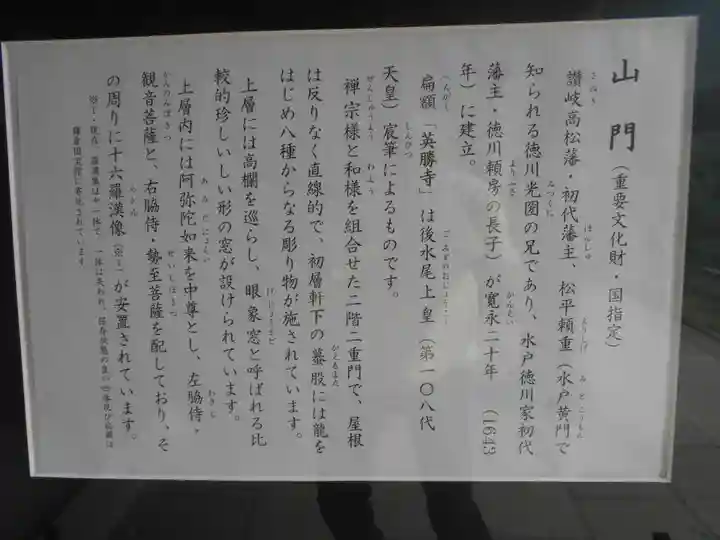 山門（重要文化財・国指定）
讃岐高松藩・初代藩主、松平頼重（水戸黄門で
知られる徳川光圀の兄であり、水戸徳川家初代
藩主・徳川頼房の長子）が寛永二十年（1643
年）に建立。
扁額「英勝寺」は後水尾上皇（第一〇八代
天皇）宸筆によるものです。
禅宗様と和様を組合せた二階二重門で、屋根
は反りなく直線的で、初層軒下の蟇股には龍を
はじめ八種からなる彫り物が施されています。
上層には高欄を巡らし、眼象窓と呼ばれる比
較的珍しいしい形の窓が設けられています。
上層内には阿弥陀如来を中尊とし、左脇侍・
観音菩薩と、右脇侍・勢至菩薩を配しており、そ
の周りに十六羅漢像（※1）が安置されています。
※1・現在、羅漢像は十一体で、一体は失われ、保存状態の良い四体及び扁額は
鎌倉国宝館に寄託されています